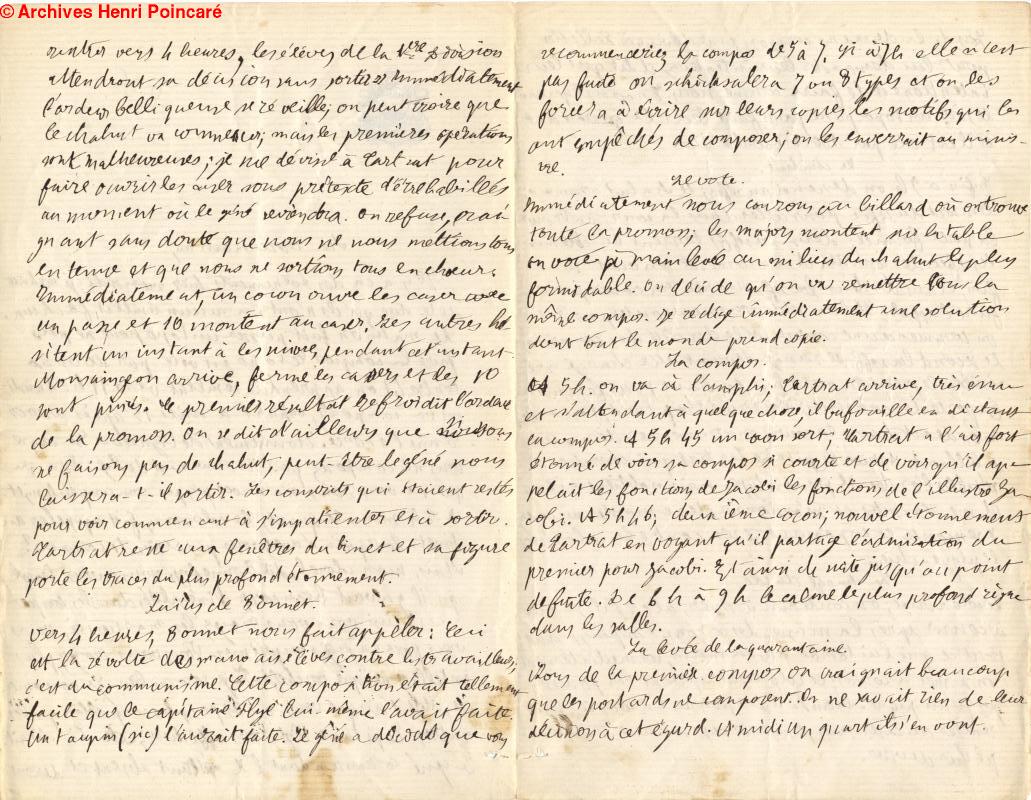 © Archives Henri Poincaré
rentrer vers 4 heures, les élèves de la 1ère division
attendront sa décision sans sortir. Immédiatement
l'ardeur belliqueuse se réveille; on peut croire que
le chahut va commencer; mais les premières opérations
sont malheureuses; je me dévisse à Tartrat pour
faire ouvrir les caser sous prétexte d'être habillés
au moment où le géné reviendra. On refuse, crai
gnant sans doute que nous ne nous mettions tous
en tenue et que nous ne sortions tous en chœur.
Immédiatement, un cocon ouvre les caser avec
un passe et 10 montent au caser, les autres hé
sitent un instant à les suivre, pendant cet instant
Monsaingeon arrive, ferme les casers et les 10
sont pincés. Ce premier résultat refroidit l'ardeur
de la promoss. On se dit d'ailleurs que si nous
ne faisons pas de chahut, peut-être le géné nous
laissera-t-il sortir. Les conscrits qui étaient restés
pour voir commencent à s'impatienter et à sortir.
Tartrat reste aux fenêtres du binet et sa figure
porte les traces du plus profond étonnement.
Laïus de Bonnet.
Vers 4 heures, Bonnet nous fait appeler: Ceci
est la révolte des mauvais élèves contre les travailleurs;
c'est du communisme. Cette composition était tellement
facile que le capitaine lui-même l'avait faite.
Un taupin (sic) l'aurait faite. Le géné a décidé que vous
recommenceriez la compos de 5 à 7. Si à 7h elle n'est
pas faite on schicksalera 7 ou 8 types et on les
forcera à écrire sur leurs copies les motifs qui les
ont empêchés de composer; on les enverrait au minis-
tre.
Le vote.
Immédiatement nous courons au billard où on trouve
toute la promoss; les majors montent sur la table
on vote à main levée au milieu du chahut le plus
formidable. On décide qu'on va remettre tous la
même compos. Je rédige immédiatement une solution
dont tout le monde prend copie.
La compos.
A 5h. on va à l'amphi; Tartrat arrive, très ému
et s'attendant à quelque chose, il bafouille en dictant
sa compos. A 5h 45 un cocon sort; Tartrat a l'air fort
étonné de voir sa compos si courte et de voir qu'il ap-
pelait les fonctions de Jacobi les fonctions de l'illustre Ja
cobi. A 5h46; deuxième cocon; nouvel étonnement
de Tartrat en voyant qu'il partage l'admiration du
premier pour Jacobi. Et ainsi de suite jusqu'au point
de finte. De 6h à 9h le calme le plus profond règne
dans les salles.
La levée de la quarantaine.
Lors de la première compos on craignait beaucoup
que les potards ne composent. On ne savait rien de leur
décision à cet égard. A midi un quart ils s'en vont.